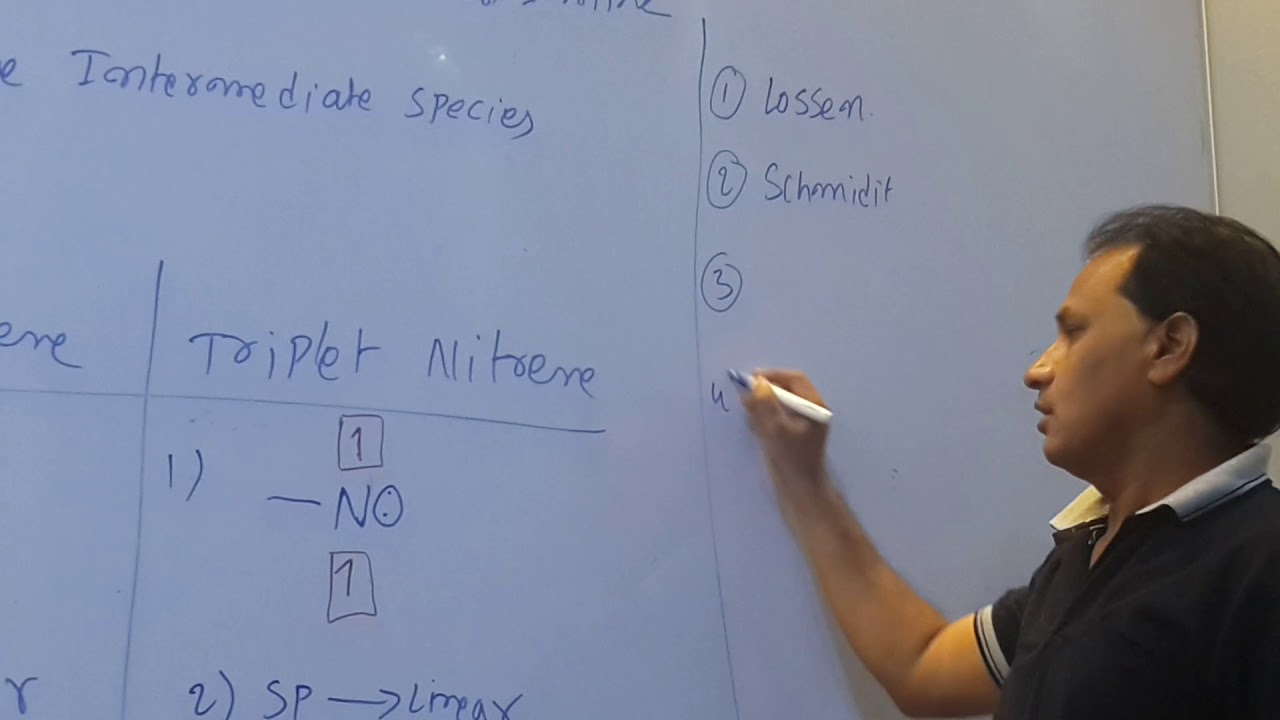 e Intermediate species
① Lossen.
② Schmidit
③
4
ene | Triplet Nitrene
1) 1
—N⊙
1
r
2) SP → Linear